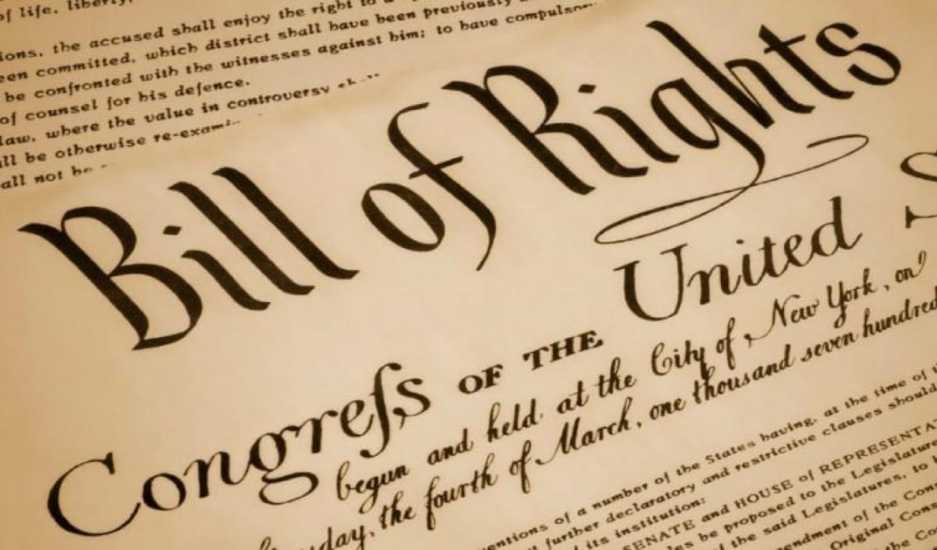 of life, liberty,
ions, the accused shall enjoy the right to a
een committed, which district shall have been previously
be confronted with the witnesses against him; to have compulsor
of counsel for his defence.
law, where the value in controversy
ll be otherwise re-exami
all not be
Bill of Rights
Congreſs OF THE United S
begun and held at the City of New York, on
day, the fourth of March, one thousand seven hundred
entions of a number of the States having, at the time of
further declaratory and restrictive clauses should
its institution:
SENATE and HOUSE of REPRESENTAT
es be proposed to the Legislature
the said Legislatures, to
endment of the Con
Original Cons